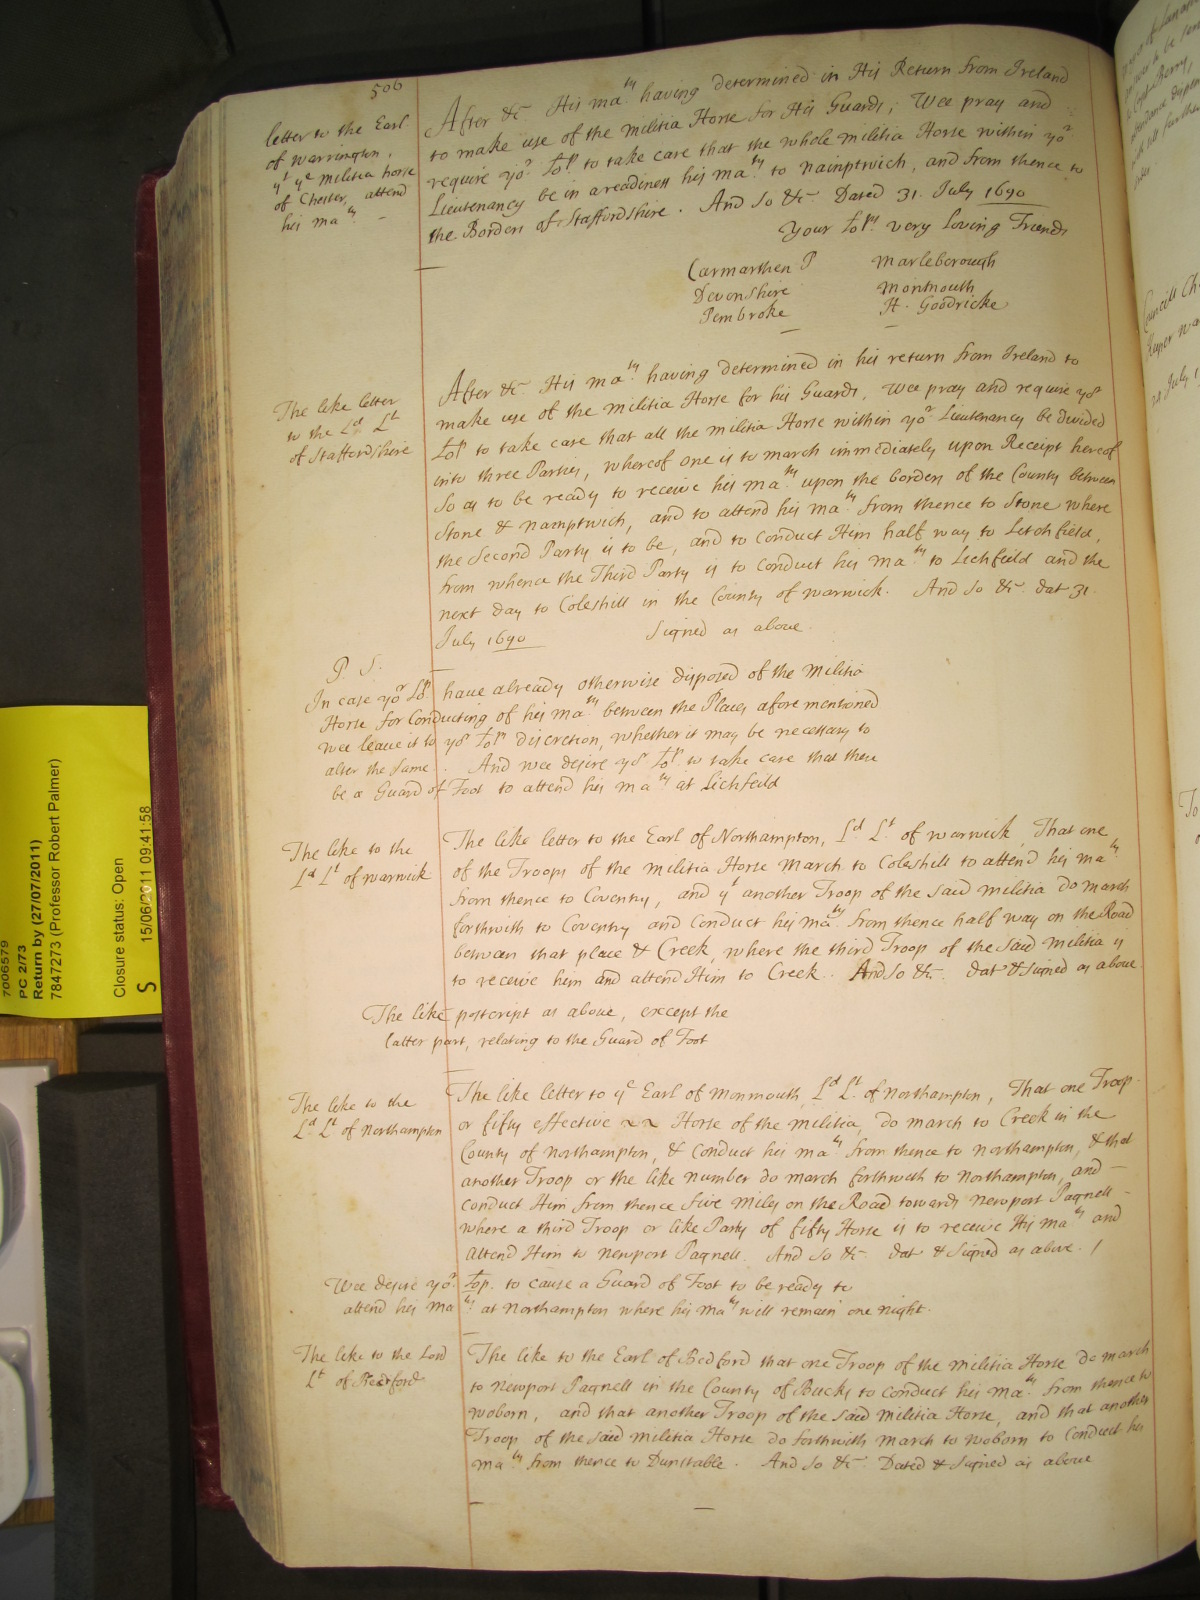 506
letter to the Earl
of Warrington,
yt ye militia horse
of Chester, attend
his maty. -
After &c His maty. having determined in His Return from Ireland
to make use of the militia Horse for His Guards; Wee pray and
require yor. Lopp. to take care that the whole militia Horse within yor.
Lieutenancy be in a readiness his maty. to Nainptwich, and from thence to
the Borders of Staffordshire. And so &c. Dated 31. July 1690
Your Lopps. very loving Friends
Carmarthen P Marleborough
Devonshire Monmouth
Pembroke H. Goodricke
The like letter
to the Ld. Lt
of Staffordshire
After &c. His maty. having determined in his return from Ireland to
make use of the militia Horse for his Guards, Wee pray and require yor
Lopp to take care that all the militia Horse within yor. Lieutenancy be divided
into three Parties, whereof one is to march immediately upon Receipt hereof
so as to be ready to receive his maty. upon the borders of the County between
Stone & Namptwich, and to attend his maty. from thence to Stone where
the Second Party is to be, and to conduct Him half way to Letchfield,
from whence the Third Party is to conduct his maty. to Lichfeild and the
next day to Coleshill in the County of Warwick. And so &c. dat 31.
July 1690 Signed as above.
P. S.
In case yor Lopp have already otherwise disposed of the Militia
Horse for Conducting of his maty. between the Places afore mentioned
wee leave it to yor Lopps discretion, whether it may be necessary to
alter the same. And wee desire yor Lopp. to take care that there
be a Guard of Foot to attend his maty at Lichfeild
The like to the
Ld Lt of Warwick
The like letter to the Earl of Northampton, Ld. Lt of Warwick That one
of the Troops of the militia Horse March to Coleshill to attend his maty.
from thence to Coventry, and yt another Troop of the said militia do march
forthwith to Coventry and conduct his maty. from thence half way on the Road
between that place & Creek, where the third Troop of the said militia is
to receive him and attend Him to Creek. And so &c. dat & signed as above
The like postcript as above, except the
latter part, relating to the Guard of Foot
The like to the
Ld Lt of Northampton
The like letter to ye Earl of Monmouth, Ld Lt. of Northampton, That one Troop
or fifty effective Horse of the militia, do march to Creek in the
County of Northampton, & conduct his maty. from thence to Northampton, & that
another Troop or the like number do march forthwith to Northampton, and -
conduct Him from thence five Miles on the Road towards Newport Pagnell -
where a third Troop or like Party of fifty Horse is to receive His Maty and
attend Him to Newport Pagnell. And so &c dat & signed as above. /
Wee desire yor. Lopp. to cause a Guard of Foot to be ready to
attend his Maty. at Northampton where his Maty will remain one night.
The like to the Lord
Lt of Bedford
The like to the Earl of Bedford that one Troop of the militia Horse do march
to Newport Pagnell in the County of Bucks to conduct his maty. from thence to
Woborn, and that another Troop of the said militia Horse, and that another
Troop of the said militia Horse do forthwith march to Woborn to conduct his
maty from thence to Dunstable. And so &c. Dated & signed as above
7006579
PC 2/73
Return by (27/07/2011)
7847273 (Professor Robert Palmer)
Closure status: Open
S 15/06/2011 09:41:58